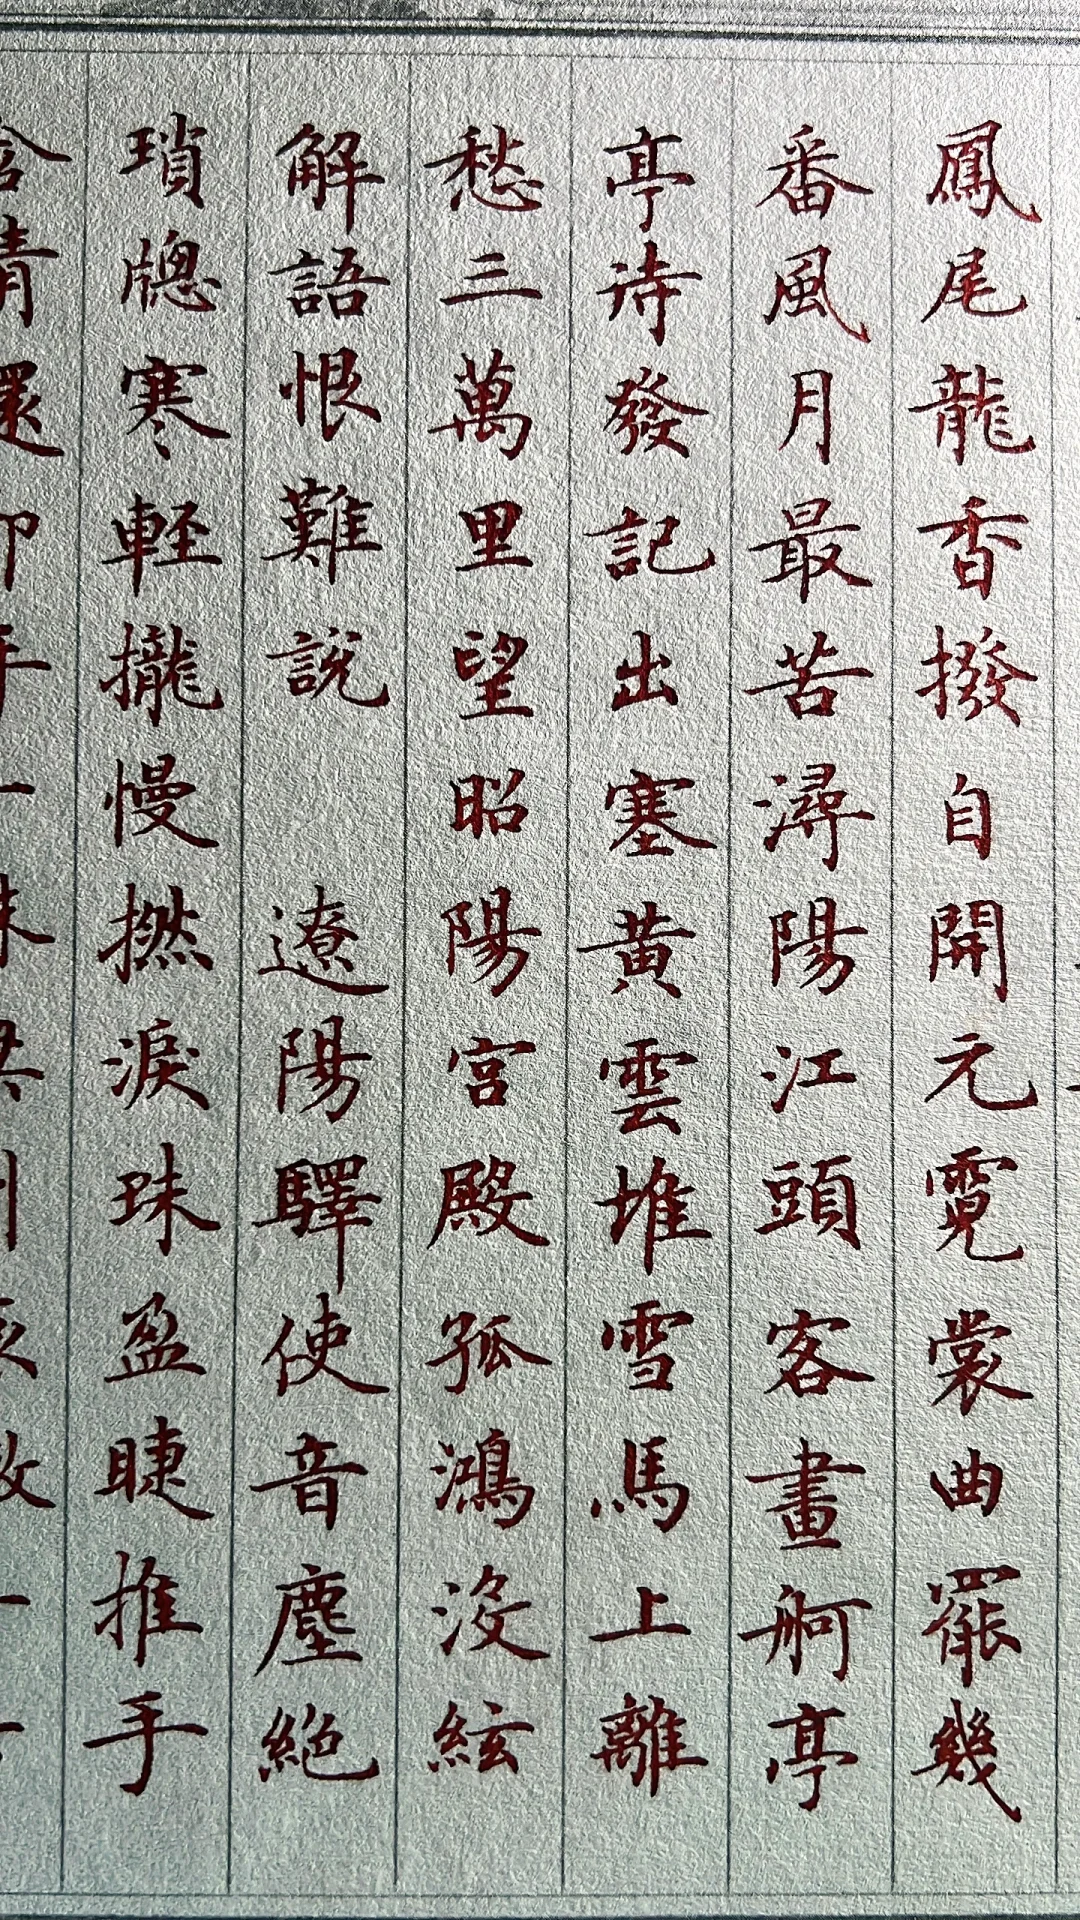 鳳尾龍香撥自開元霓裳曲罷幾
番風月最苦潯陽江頭客畫舸亭
亭待發記出塞黃雲堆雪馬上離
愁三萬里望昭陽宮殿孤鴻沒絃
解語恨難說　遼陽驛使音塵絕
瑣牕寒軽攏慢撚淚珠盈睫推手